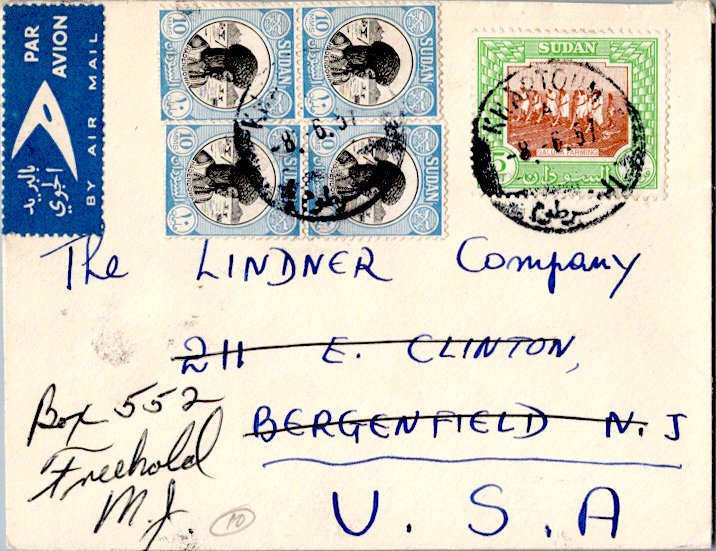 PAR AVION
بالبريد الجوي
BY AIR MAIL
10 SUDAN
10 SUDAN
10 SUDAN
10 SUDAN
SUDAN
5
السودان
KHARTOUM
-8. 6. 57
-8. 6. 57
The LINDNER Company
211 E. CLINTON,
BERGENFIELD N. J
U. S. A
Box 552
Freehold
N.J.
10